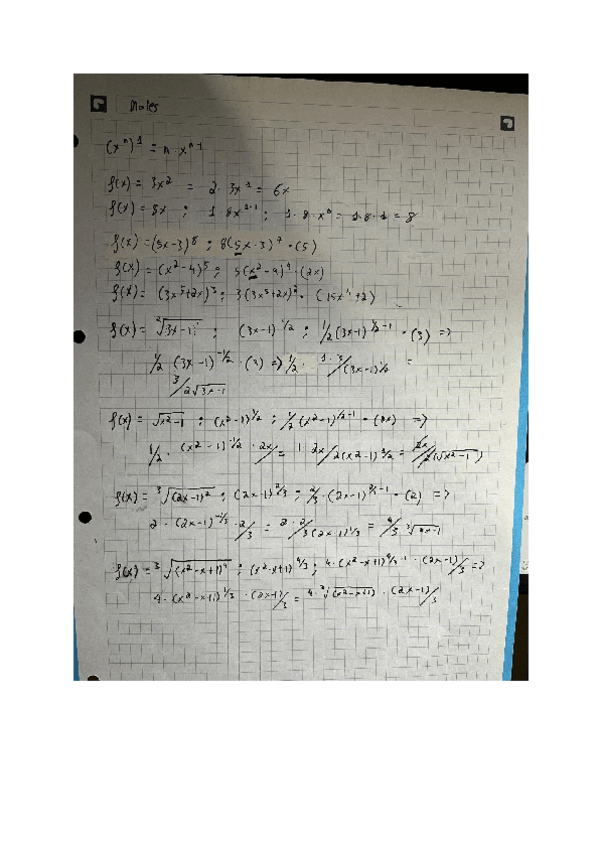 Notes
(xⁿ)¹ = n · xⁿ⁻¹
f(x) = 3x² = 2 · 3x¹ = 6x
f(x) = 8x ; 1·8x¹⁻¹ ; 1·8·x⁰ = 1·8·1 = 8
f(x) = (5x-3)⁸ ; 8(5x-3)⁷ · (5)
f(x) = (x²-4)⁵ ; 5(x²-4)⁴ · (2x)
f(x) = (3x⁵+2x)³ ; 3(3x⁵+2x)² · (15x⁴+2)
f(x) = ²√3x-1 ; (3x-1)^1/2 ; 1/2(3x-1)^1/2-1 · (3) =>
1/2 · (3x-1)^-1/2 · (3) => 1/2 · 1·3/(3x-1)^1/2 =
3/2√3x-1
f(x) = √x²-1 ; (x²-1)^1/2 ; 1/2(x²-1)^1/2-1 · (2x) =>
1/2 · (x²-1)^-1/2 · 2x/ = 1·2x/2(x²-1)^1/2 = 2x/2(√x²-1)
f(x) = ³√(2x-1)² ; (2x-1)^2/3 ; 2/3 · (2x-1)^2/3-1 · (2) =>
2 · (2x-1)^-1/3 · 2/3 = 2·2/3(2x-1)^1/3 = 4/3 ³√2x-1
f(x) = ³√(x²-x+1)⁴ ; (x²-x+1)^4/3 ; 4·(x²-x+1)^4/3-1 · (2x-1)/3 =>
4·(x²-x+1)^1/3 · (2x-1)/3 = 4·³√(x²-x+1) · (2x-1)/3